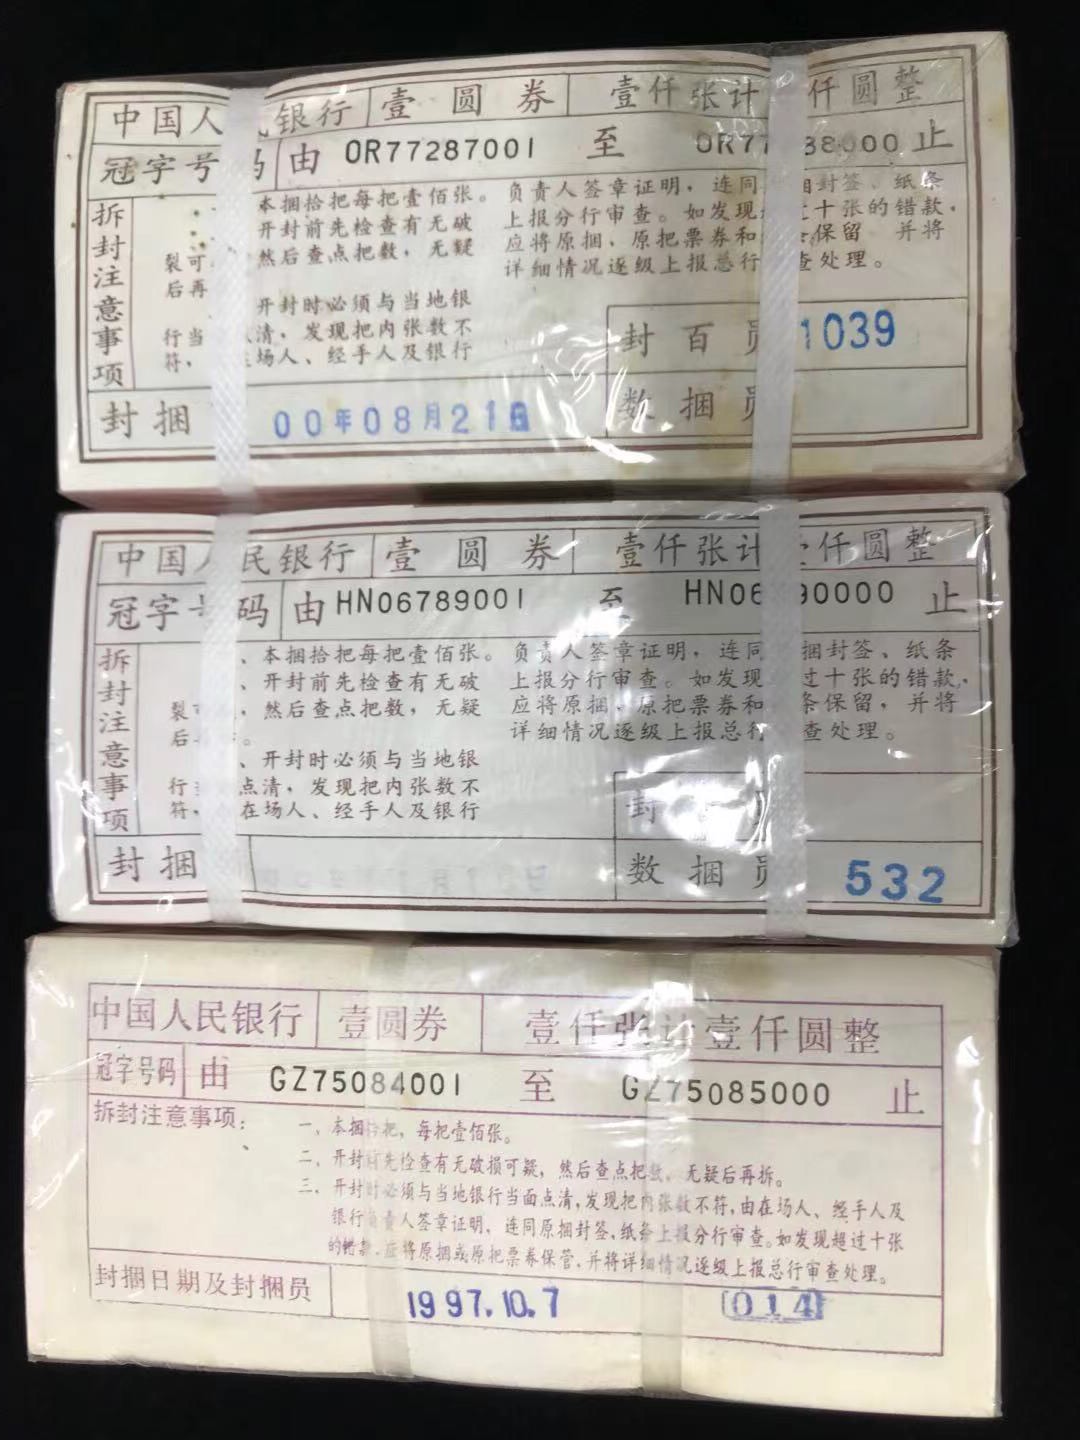 中国人民银行 壹圆券 壹仟张计 仟圆整
冠字号码 由 OR77287001 至 OR77 88000 止
拆封注意事项
本捆拾把每把壹佰张。
开封前先检查有无破
裂可 然后查点把数，无疑
后再
开封时必须与当地银
行当 清，发现把内张数不
符， 在场人、经手人及银行
负责人签章证明，连同 捆封签、纸条
上报分行审查。如发现 过十张的错款，
应将原捆、原把票券和 条保留，并将
详细情况逐级上报总行 查处理。
封百员 1039
封捆 00年08月21日
数捆员
中国人民银行 壹圆券 壹仟张计 仟圆整
冠字号码 由 HN06789001 至 HN06 90000 止
拆封注意事项
、本捆拾把每把壹佰张。
、开封前先检查有无破
裂 ，然后查点把数，无疑
后 。
、开封时必须与当地银
行 点清，发现把内张数不
符， 在场人、经手人及银行
负责人签章证明，连同 捆封签、纸条
上报分行审查。如发现 过十张的错款，
应将原捆、原把票券和 条保留，并将
详细情况逐级上报总行 查处理。
封
封捆
数捆员 532
中国人民银行 壹圆券 壹仟张计壹仟圆整
冠字号码 由 GZ75084001 至 GZ75085000 止
拆封注意事项：
一、本捆拾把，每把壹佰张。
二、开封前先检查有无破损可疑，然后查点把数，无疑后再拆。
三、开封时必须与当地银行当面点清，发现把内张数不符，由在场人、经手人及
银行负责人签章证明，连同原捆封签，纸条上报分行审查。如发现超过十张
的错款，应将原捆或原把票券保管，并将详细情况逐级上报总行审查处理。
封捆日期及封捆员 1997.10.7 014